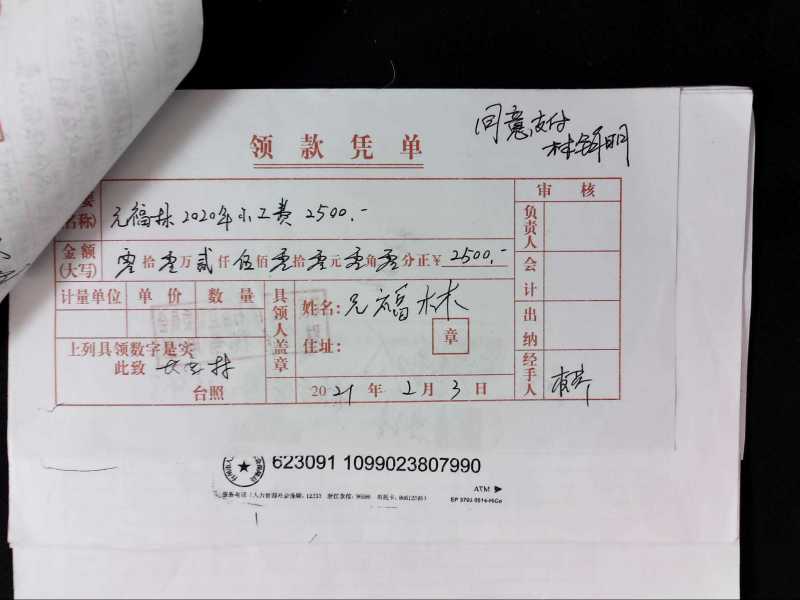 同意支付
领款凭单
审 核
名称) 元福林2020年小工费 2500.-
负责人
金额(大写) 零拾零万贰仟伍佰零拾零元零角零分正¥2500.-
会计
计量单位 单价 数量
具领人盖章
姓名: 元福林
住址:
章
出纳
上列具领数字是实
此致
台照
2021年2月3日
经手人
623091 1099023807990
ATM ▶